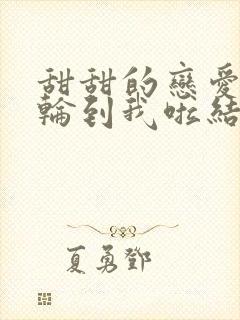 甜甜的戀愛
輪到我啦結
夏勇鄧